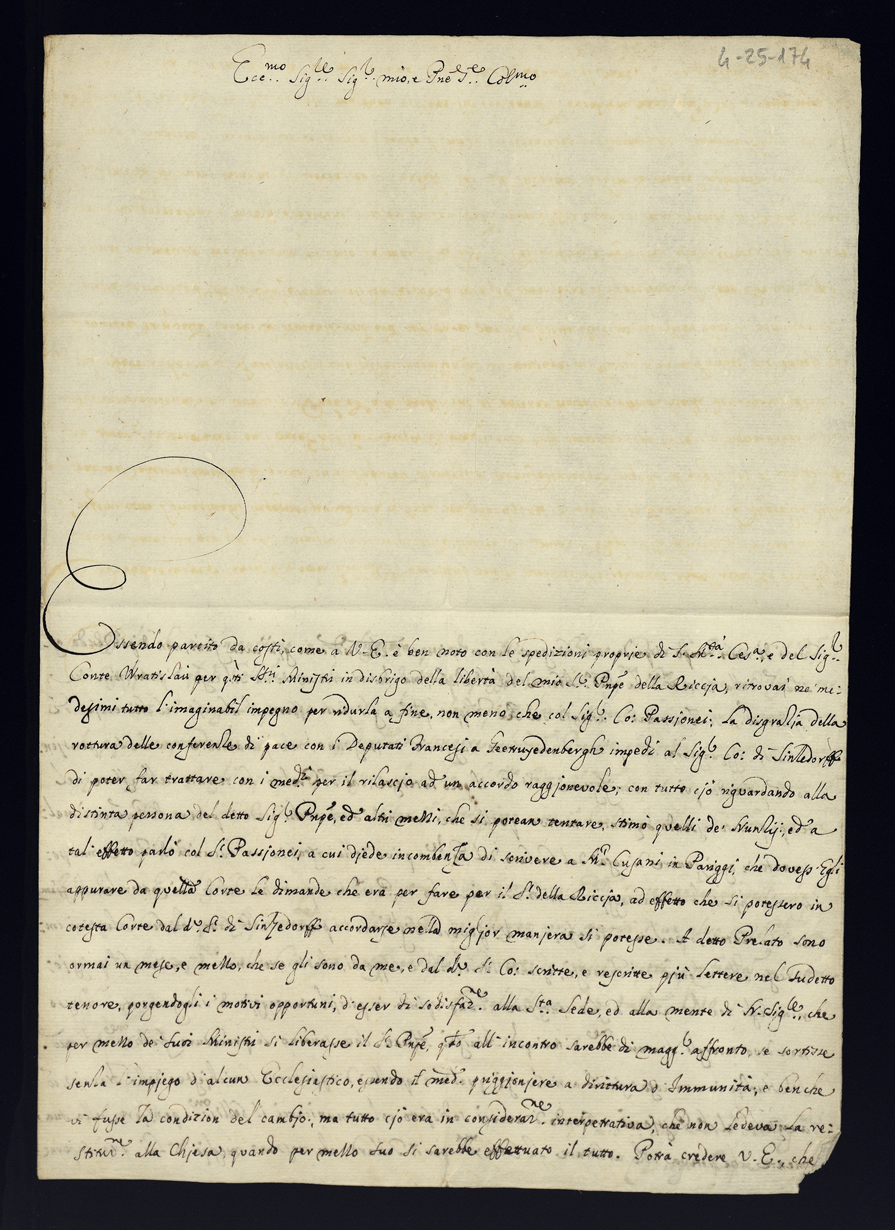 4-25-174
Ecc.mo Sig.re Sig.r mio, e Pne Colmo
Essendo partito da costì, come a V. E. è ben noto con le spedizioni proprie di S. M.tà Ces.a, e del Sig.r
Conte Wratislau per q.sti Ministri in disbrigo della libertà del mio S.r Pnpe della Riccja, ritrovai ne me=
desimi tutto l'imaginabil impegno per ridurla a fine, non meno, che col Sig.r Co: Passjonei; La disgrazja della
rottura delle conferenze di pace con i Deputati Francesi a Geetruijdenbergh impedì al Sig.r Co: di Sinzedorff
di poter far trattare con i med.mi per il rilascjo ad un accordo raggjonevole; con tutto cjò riguardando alla
distinta persona del detto Sig.r Pnpe, ed altri mezzi, che si potean tentare, stimò quelli de' Nunzij; ed a
tal' effetto parlò col S.r Passjonei, a cui djede incombenza di scrivere a M.r Cusani in Pariggi, che dovess' Egli
appurare da quella Corte le dimande che era per fare per il S.r della Riccja, ad effetto che si potessero in
cotesta Corte dal d.o S.r di Sinzedorff accordarse nella migljor manjera si potesse. A detto Prelato sono
ormai un mese, e mezzo, che se gli sono da me, e dal d.o S.r Co: scritte, e rescritte pjù lettere nel sudetto
tenore, porgendogli i motivi opportuni, d'esser di sodisfaz.ne alla S.ta Sede, ed alla mente di N. Sig.re, che
per mezzo de' suoi Ministri si liberasse il S.r Pnpe, q.to all' incontro sarebbe di magg.r affronto, se sortisse
senza l'impjego d'alcun Ecclesiastico, essendo il med.o priggjonjere a dirittura d'Immunità, e benche
vi fusse la condizion del cambjo; ma tutto cjò era in consideraz.ne interpetrativa, che non ledeva la re=
stituz.ne alla Chjesa, quando per mezzo suo si sarebbe effettuato il tutto. Potrà credere V. E., che